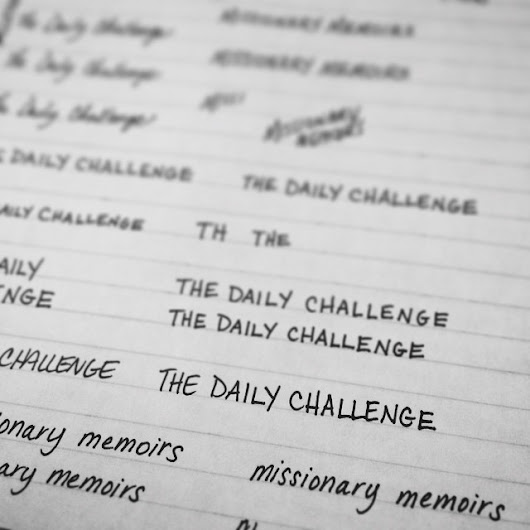 the Daily Challenge MISSIONARY MEMOIRS
the Daily Challenge MISSIONARY MEMOIRS
Daily Challenge
MISSIONARY
MEMOIRS
DAILY CHALLENGE THE DAILY CHALLENGE
DAILY CHALLENGE TH THE
DAILY THE DAILY CHALLENGE
ENGE THE DAILY CHALLENGE
CHALLENGE THE DAILY CHALLENGE
onary memoirs missionary memoirs
ary memoirs